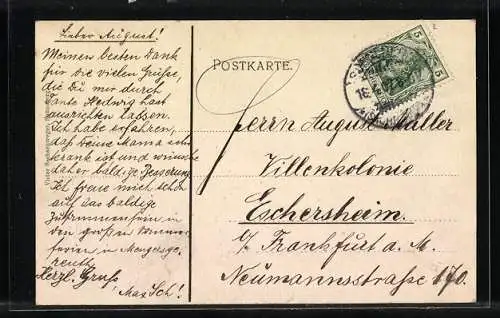 Lieber August!
Meinen besten Dank
für die vielen Grüße,
die Du mir durch
Tante Hedwig hast
ausrichten lassen.
Ich habe erfahren,
daß Deine Mama sehr
krank ist und wünsche
daher baldige Besserung.
Ich freue mich schon
auf das baldige
Zusammensein in
den großen Sommer-
ferien in
reuth.
Herzl. Gruß
Max Sch!
POSTKARTE.
Herrn August Müller
Villenkolonie
Eschersheim.
b/ Frankfurt a. M.
Neumannsstraße 170.
5
5